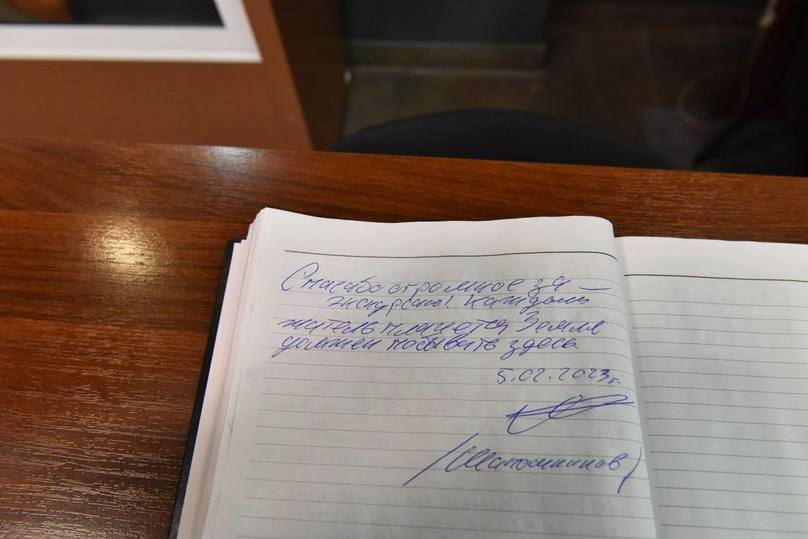 Спасибо огромное за
экскурсию! Каждый
житель планеты Земля
должен побывать здесь
5.02.2023г.